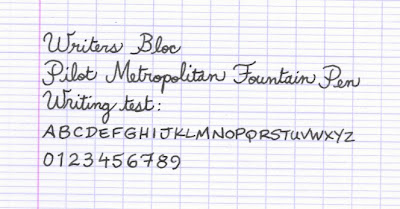 Writers Bloc
Pilot Metropolitan Fountain Pen
Writing test:
ABCDEFGHIJKLMNOPQRSTUVWXYZ
0123456789